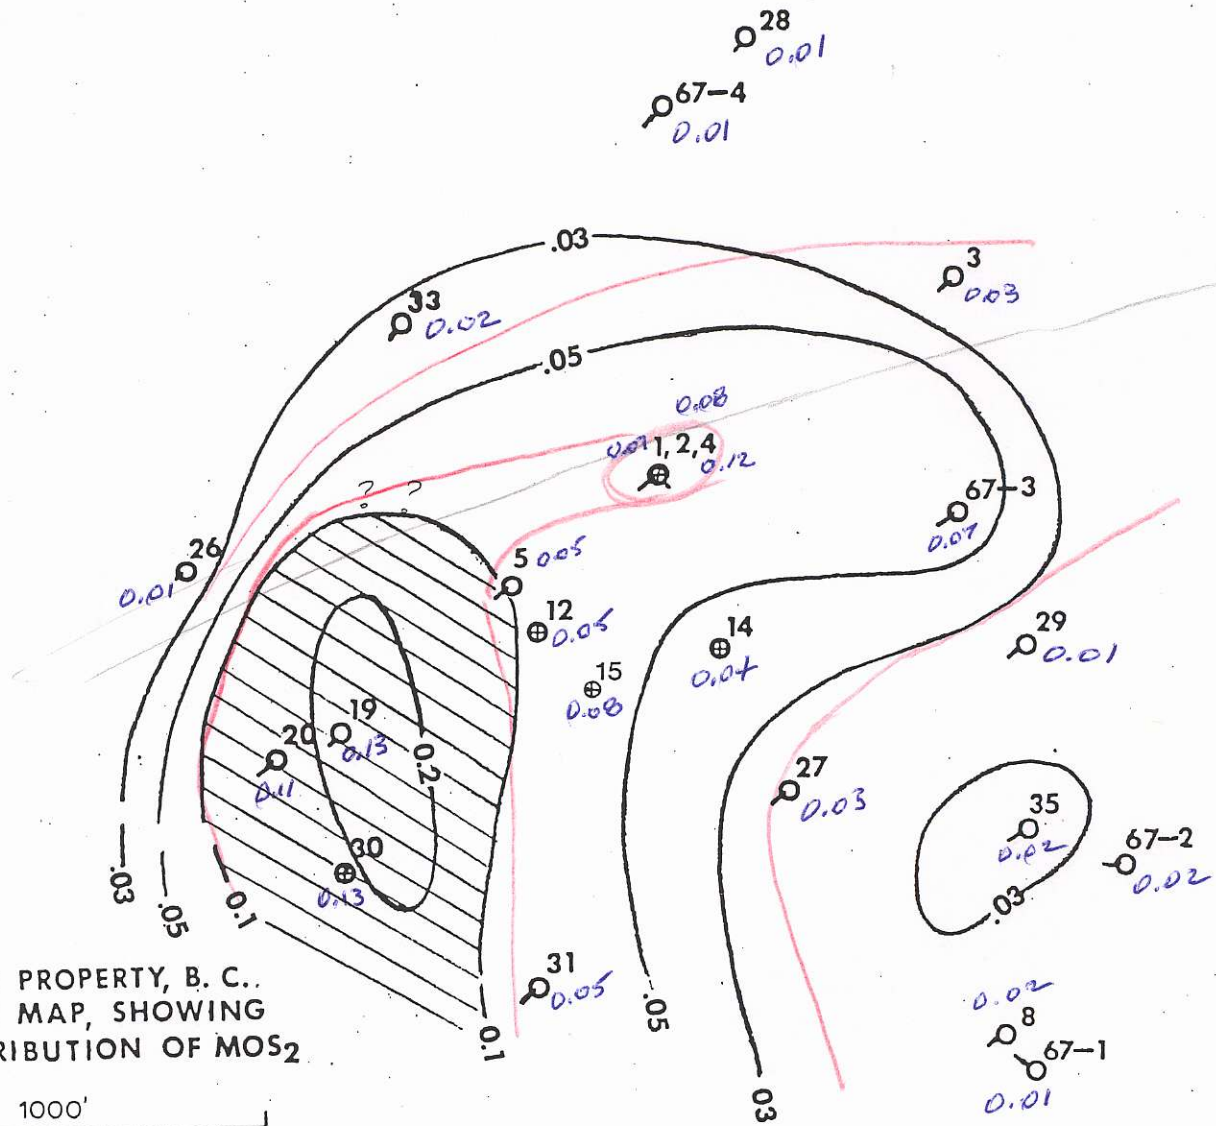 28
0.01
67-4
0.01
.03
3
0.03
33
0.02
.05
0.08
1, 2, 4
0.12
? ?
67-3
0.07
26
0.01
5 0.05
12
0.05
14
15
0.08
29
0.01
19
0.13
20
0.11
0.2
27
0.03
35
0.02
67-2
0.02
30
0.13
.03
.05
0.1
.03
31
0.05
.05
0.1
0.02
8
67-1
0.01
03
PROPERTY, B. C..
MAP, SHOWING
RIBUTION OF MOS2
1000'